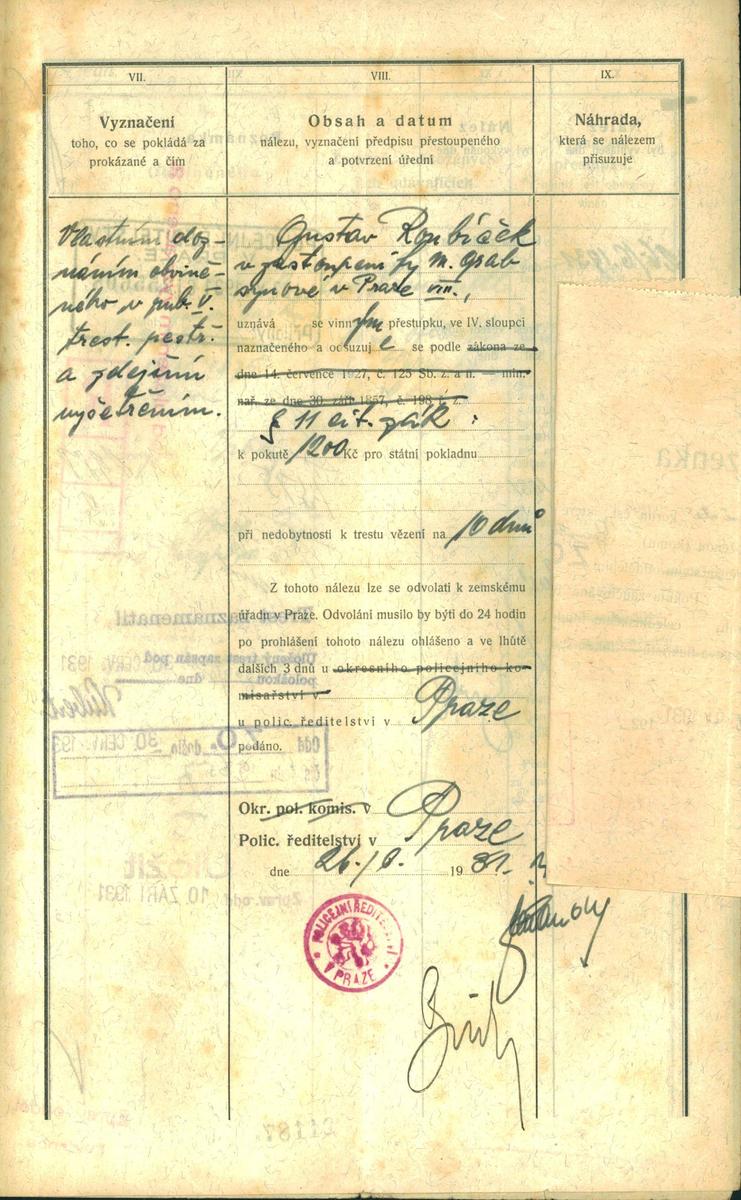 VII.
Vyznačení
toho, co se pokládá za
prokázané a čím
VIII.
Obsah a datum
nálezu, vyznačení předpisu přestoupeného
a potvrzení úřední
IX.
Náhrada,
která se nálezem
přisuzuje
Vlastním doz-
náním obvině-
ného v rub. V.
trest. pestř.
a zdejším
vyšetřením.
Gustav Roubíček
v zastoupení fy M. Grab
synové v Praze VIII.,
uznává se vinn ým přestupku, ve IV. sloupci
naznačeného a odsuzuj e se podle zákona ze
dne 14. července 1927, č. 125 Sb. z. a n. — min.
nař. ze dne 30. září 1857, č. 198 ř. z.
§ 11 cit. zák.:
k pokutě 1200 Kč pro státní pokladnu
při nedobytnosti k trestu vězení na 10 dnů
Z tohoto nálezu lze se odvolati k zemskému
úřadu v Praze. Odvolání musilo by býti do 24 hodin
po prohlášení tohoto nálezu ohlášeno a ve lhůtě
dalších 3 dnů u okresního policejního ko-
misařství v
u polic. ředitelství v Praze
podáno.
Okr. pol. komis. v
Polic. ředitelství v Praze
dne 26./6. 1931.
POLICEJNÍ ŘEDITELSTVÍ
V PRAZE